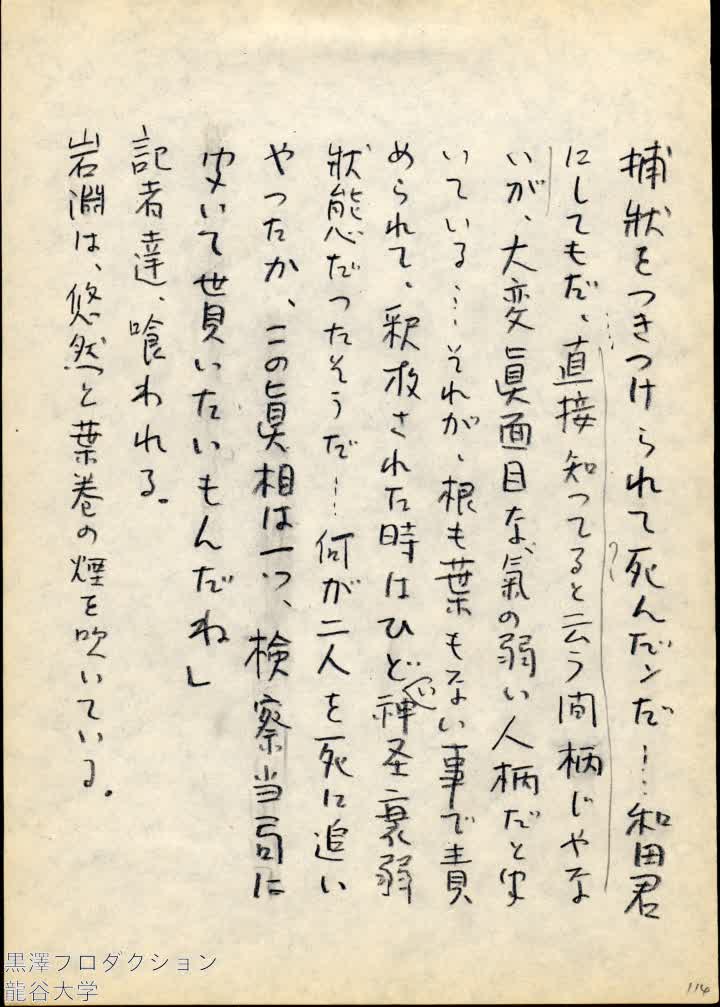 捕狀をつきつけられて死んだンだ……和田君
にしてもだ、直接知ってると云う間柄じゃな
いが、大変眞面目な氣の弱い人柄だと聞
いている……それが、根も葉もない事で責
められて、釈放された時はひどい神圣衰弱
狀態だったそうだ……何が二人を死に追い
やったか、この眞相は一つ、検察当局に
聞いて貰いたいもんだね」
記者達、喰われる。
岩淵は、悠然と葉巻の煙を吹いている。
114
黒澤プロダクション
龍谷大学